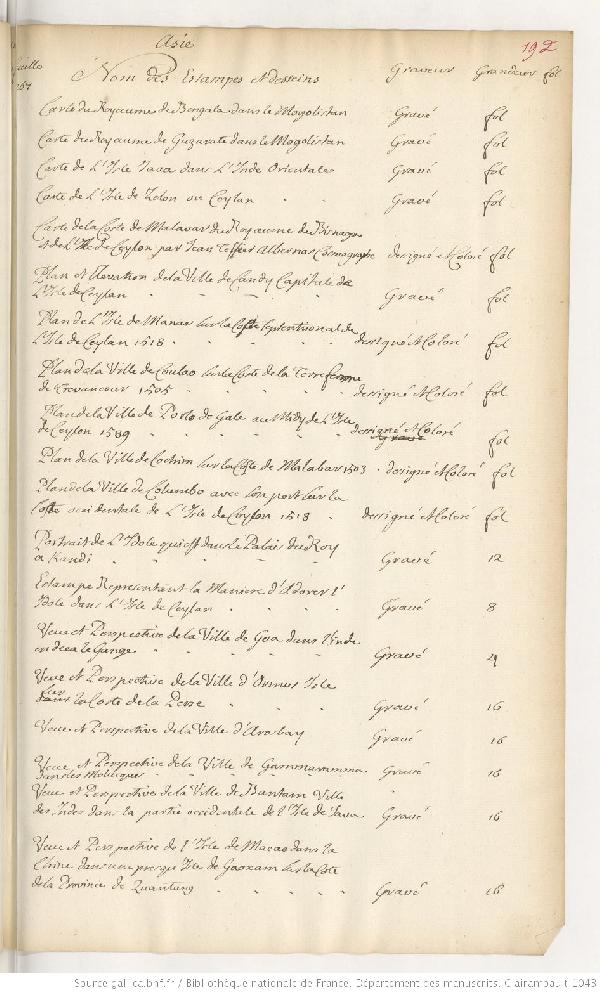 Asie
192
Nom des Estampes et desseins Graveur Grandeur fol
Carte du Royaume de Bengala dans le Mogolistan Gravé fol
Carte du Royaume de Guzurate dans le Mogolistan Gravé fol
Carte de L'Isle Java dans L'Inde Orientales Gravé fol
Carte de L'Isle de Zelon ou Ceylan Gravé fol
Carte de la Coste de Malavar du Royaume de
et de L'Isle de Ceylon par Jean Albernas Cosmographe designé et Coloré fol
Plan et Elevation de la Ville de Candy Capitale de
L'Isle de Ceylan Gravé fol
Plan de L'Isle de Manar sur la Coste Septentrional de
L'Isle de Ceylan 1518 designé et Coloré fol
Plan de la Ville de Coulao sur la Coste de la Terre ferme
de Trevancour 1505 designé et Coloré fol
Plan de la Ville de Porto de Gale au Midy de L'Isle
de Ceylon 1589 designé et Coloré fol
Plan de la Ville de Cochim sur la Coste de Malabar 1503 designé et Coloré fol
Plan de la Ville de Columbo avec son port sur la
Coste occidentale de L'Isle de Ceylon 1518 designé et Coloré fol
Portrait de L'Idole qui est dans le Palais du Roy
a Kandi Gravé 12
Estampe Representant la Maniere d'Adorer l'
Idole dans L'Isle de Ceylan Gravé 8
Veue et Perspective de la Ville de Goa dans l'Inde
en deca le Gange Gravé 4
Veue et Perspective de la Ville d'Ormus Isle
sur la Coste de la Perse Gravé 16
Veue et Perspective de la Ville d'Arabay Gravé 16
Veue et Perspective de la Ville de Gammaramma
dans les Moluques Gravé 16
Veue et Perspective de la Ville de Bantam Ville
des Indes dans la partie occidentale de l'Isle de Java Gravé 16
Veue et Perspective de l'Isle de Macao dans la
Chine dans une presqu'Isle de Gaoxam sur la Coste
de la Province de Quantung Gravé 16
Source gallica.bnf.fr / Bibliothèque nationale de France. Département des manuscrits. Clairambault 1043